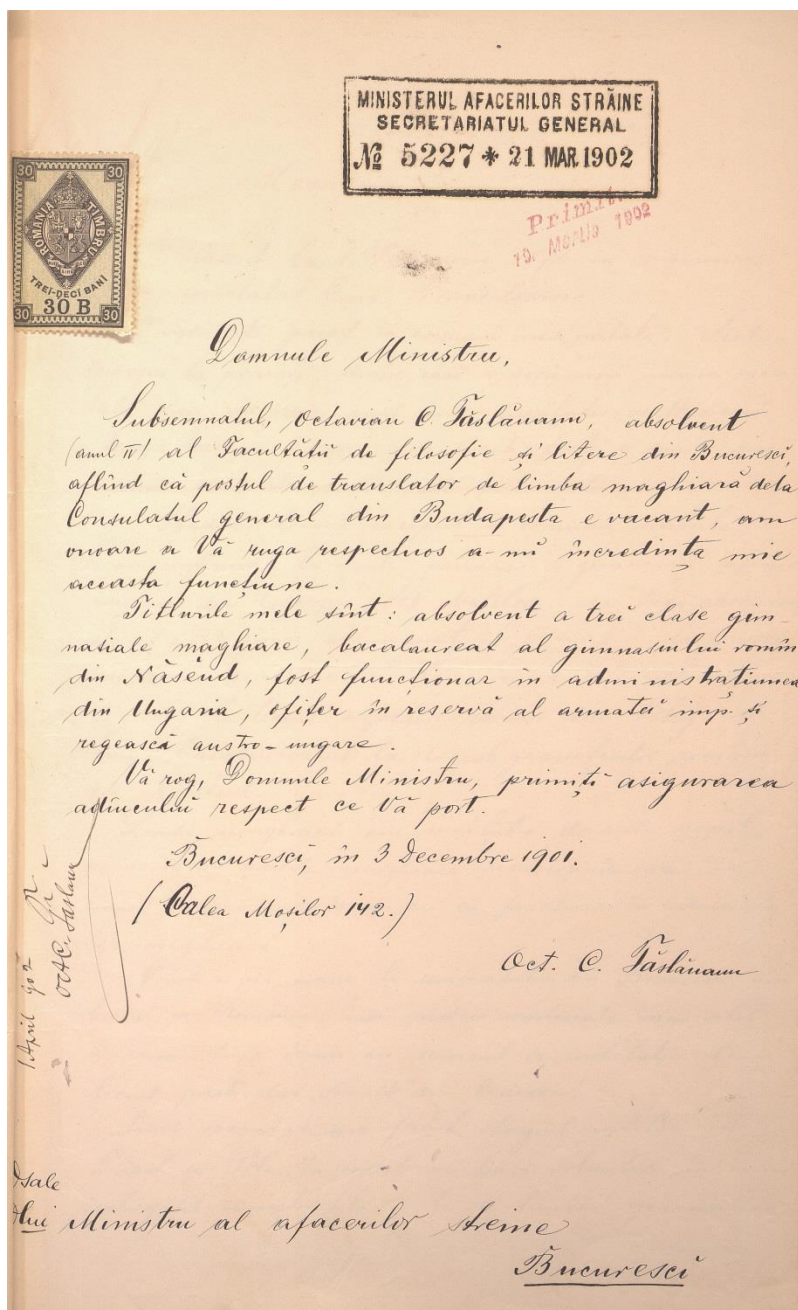 MINISTERUL AFACERILOR STRĂINE
SECRETARIATUL GENERAL
№ 5227 * 21 MAR. 1902
Primit
19. Martie 1902
30 30
ROMANIA TIMBRU
TREI-DECI BANI
30 30 B 30
Domnule Ministru,
Subsemnatul, Octavian C. Tăslăuanu, absolvent
(anul IV) al Facultății de filosofie și litere din Bucurescĭ,
aflînd că postul de translator de limba maghiară dela
Consulatul general din Budapesta e vacant, am
onoare a Vă ruga respectuos a-mĭ încredința mie
aceasta funcțiune.
Titlurile mele sînt: absolvent a treĭ clase gim-
nasiale maghiare, bacalaureat al gimnasiului romîn
din Năsĕud, fost funcționar în administrațiunea
din Ungaria, ofițer în reservă al armateĭ imp. și
regească austro-ungare.
Vă rog, Domnule Ministru, primițĭ asigurarea
adînculuĭ respect ce Vă port.
Bucurescĭ, în 3 Decembre 1901.
(Calea Moșilor 142.)
Oct. C. Tăslăuanu
1 April 902
Oct. C. Taslauanu
Dsale
Dlui Ministru al afacerilor streine
Bucurescĭ